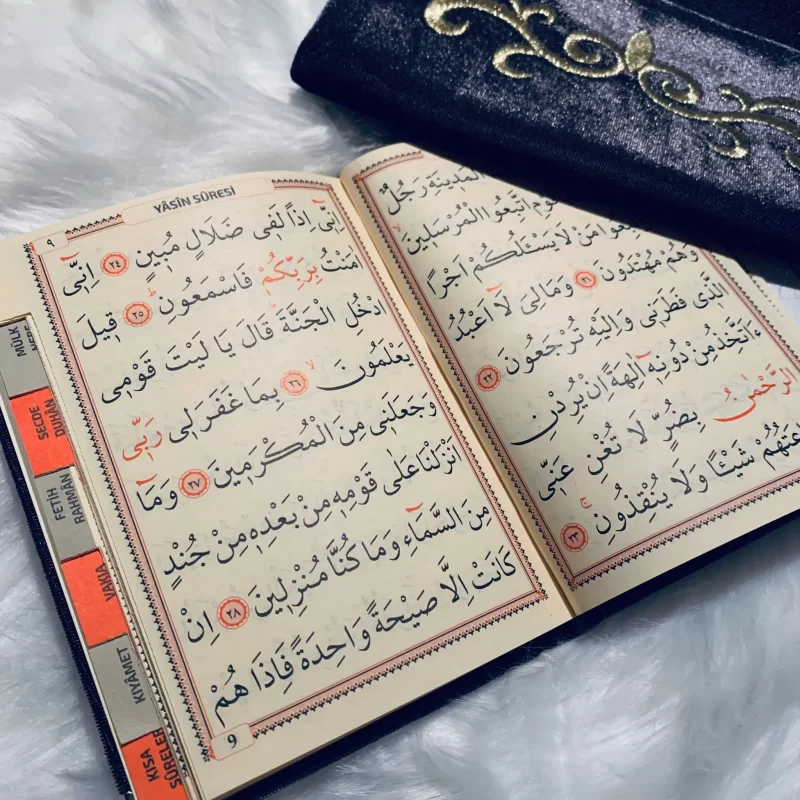 الْمَدِينَةِ رَجُلٌ
اتَّبِعُوا الْمُرْسَلِينَ
مَنْ لَا يَسْئَلُكُمْ اَجْرًا
وَهُمْ مُهْتَدُونَ ٢١ وَمَالِىَ لَٓا اَعْبُدُ
الَّذِى فَطَرَنِى وَاِلَيْهِ تُرْجَعُونَ ٢٢
ءَاَتَّخِذُ مِنْ دُونِهِٓ اٰلِهَةً اِنْ يُرِدْنِ
الرَّحْمٰنُ بِضُرٍّ لَا تُغْنِ عَنِّى
شَيْئًا وَلَا يُنْقِذُونِ ۚ ٢٣
٩ YÂSÎN SÛRESİ
اِنِّٓى اِذًا لَفِى ضَلَالٍ مُبِينٍ ٢٤ اِنِّٓى
مَنْتُ بِرَبِّكُمْ فَاسْمَعُونِ ۜ ٢٥ قِيلَ
ادْخُلِ الْجَنَّةَ قَالَ يَا لَيْتَ قَوْمِى
يَعْلَمُونَ ۙ ٢٦ بِمَا غَفَرَ لِى رَبِّى
وَجَعَلَنِى مِنَ الْمُكْرَمِينَ ٢٧ وَمَٓا
اَنْزَلْنَا عَلٰى قَوْمِهِ مِنْ بَعْدِهِ مِنْ جُنْدٍ
مِنَ السَّمَٓاءِ وَمَا كُنَّا مُنْزِلِينَ ٢٨ اِنْ
كَانَتْ اِلَّا صَيْحَةً وَاحِدَةً فَاِذَا هُمْ
9
MÜLK
SECDE
DUHÂN
FETİH
RAHMÂN
VAKIA
KIYÂMET
KISA
SÛRELER